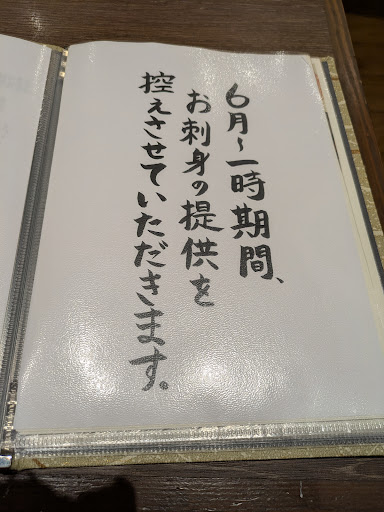 6月〜一時期間、
お刺身の提供を
控えさせていただきます。